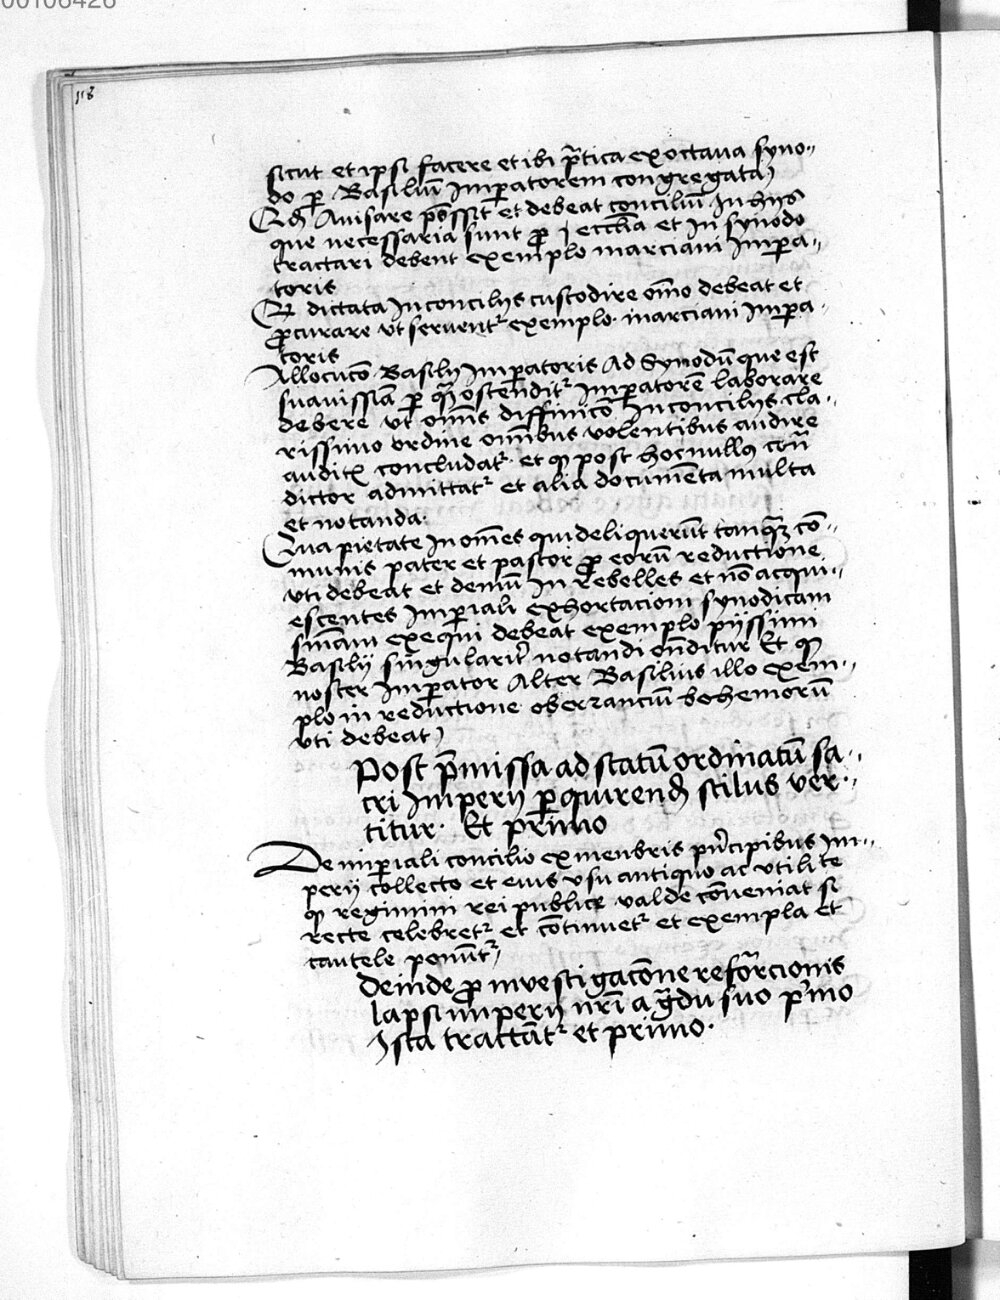 00106426
118
sicut et ipsi facere et ibi p̄tica ex octaua syno-
do ꝑ Basiliū Imꝑatorem congregata
Qd Auisare possit et debeat conciliū In hijs
que necessaria sunt ꝓ eccl̄ia et In synodo
tractari debent exemplo marciani Imꝑa-
toris
Qꝫ dictata In concilijs custodire om̄o debeat et
ꝓcurare vt seruent᷑ exemplo marciani Imꝑa-
toris
Allocucō Basilij Imꝑatoris Ad Synodū que est
suauissīa ꝑ quā ostendit᷑ Imꝑatorē laborare
debere vt om̄is diffinicō In concilijs cla-
rissimo ordine om̄ibus volentibus audire
audita concludat᷑ et ꝙ post hoc nullus
dictor admittat᷑ et alia documēta multa
et notanda
Qua pietate In om̄es qui deliquerūt tamqȝ cō-
munis pater et pastor ꝓ eorū reductione
vti debeat et demū In rebelles et nō acqui-
escentes Imꝑiali exhortacioni synodicam
sn̄iam exequi debeat exemplo pijssimi
Basilij singularit᷑ notandi on̄ditur Et ꝙ
noster Imꝑator Alter Basilius illo exem-
plo in reductione oberranciū bohemorū
vti debeat
Post p̄missa ad statū ordinatū sa-
cri Imꝑij ꝑquirend̄ stilus ver-
titur Et primo
De imꝑiali concilio ex menbris p̄ncipibus im-
perij collecto et eius vsu antiquo ac vtili te
ꝙ regimini rei publice valde cōueniat si
recte celebret᷑ et cōtinuet᷑ et exempla et
cautele ponūt᷑
Deinde ꝓ inuestigacōne reformacionis
lapsi imperij nr̄i a gradu suo primo
Ista tractāt᷑ et primo